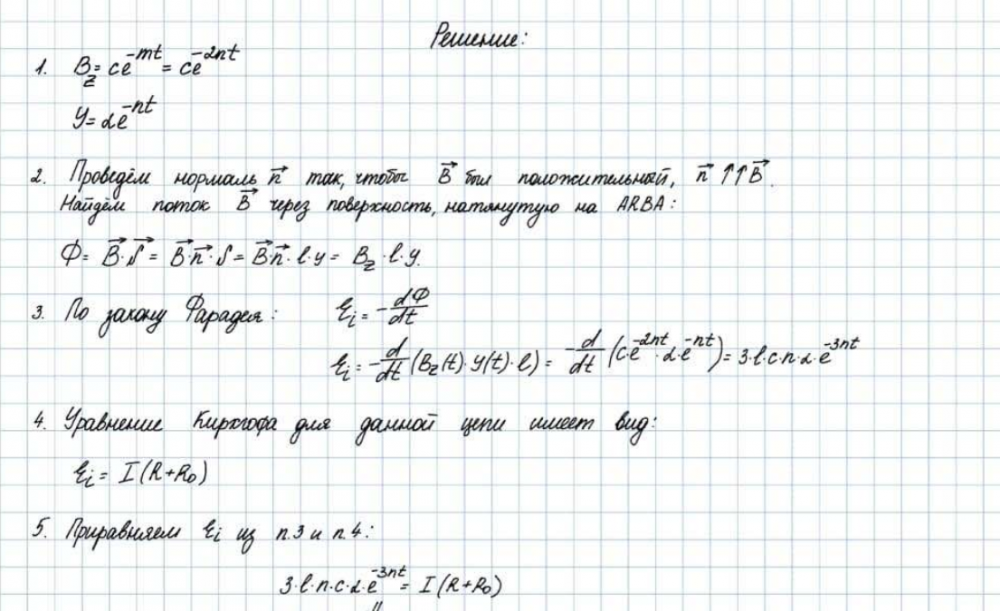 Решение:
1. B_z = ce^{-mt} = ce^{-2nt}
y = αe^{-nt}
2. Проведём нормаль n⃗ так, чтобы B⃗ был положительный, n⃗ ↑↑ B⃗.
Найдём поток B⃗ через поверхность, натянутую на ARBA:
Ф = B⃗·S⃗ = B⃗·n⃗·S = B⃗·n⃗·l·y = B_z·l·y.
3. По закону Фарадея: ℰi = -dФ/dt
ℰi = -d/dt (B_z(t)·y(t)·l) = -d/dt (c·e^{-2nt}·α·e^{-nt}) = 3·l·c·n·α·e^{-3nt}
4. Уравнение Кирхгофа для данной цепи имеет вид:
ℰi = I(R+R₀)
5. Приравняем ℰi из п.3 и п.4:
3·l·n·c·α·e^{-3nt} = I(R+R₀)